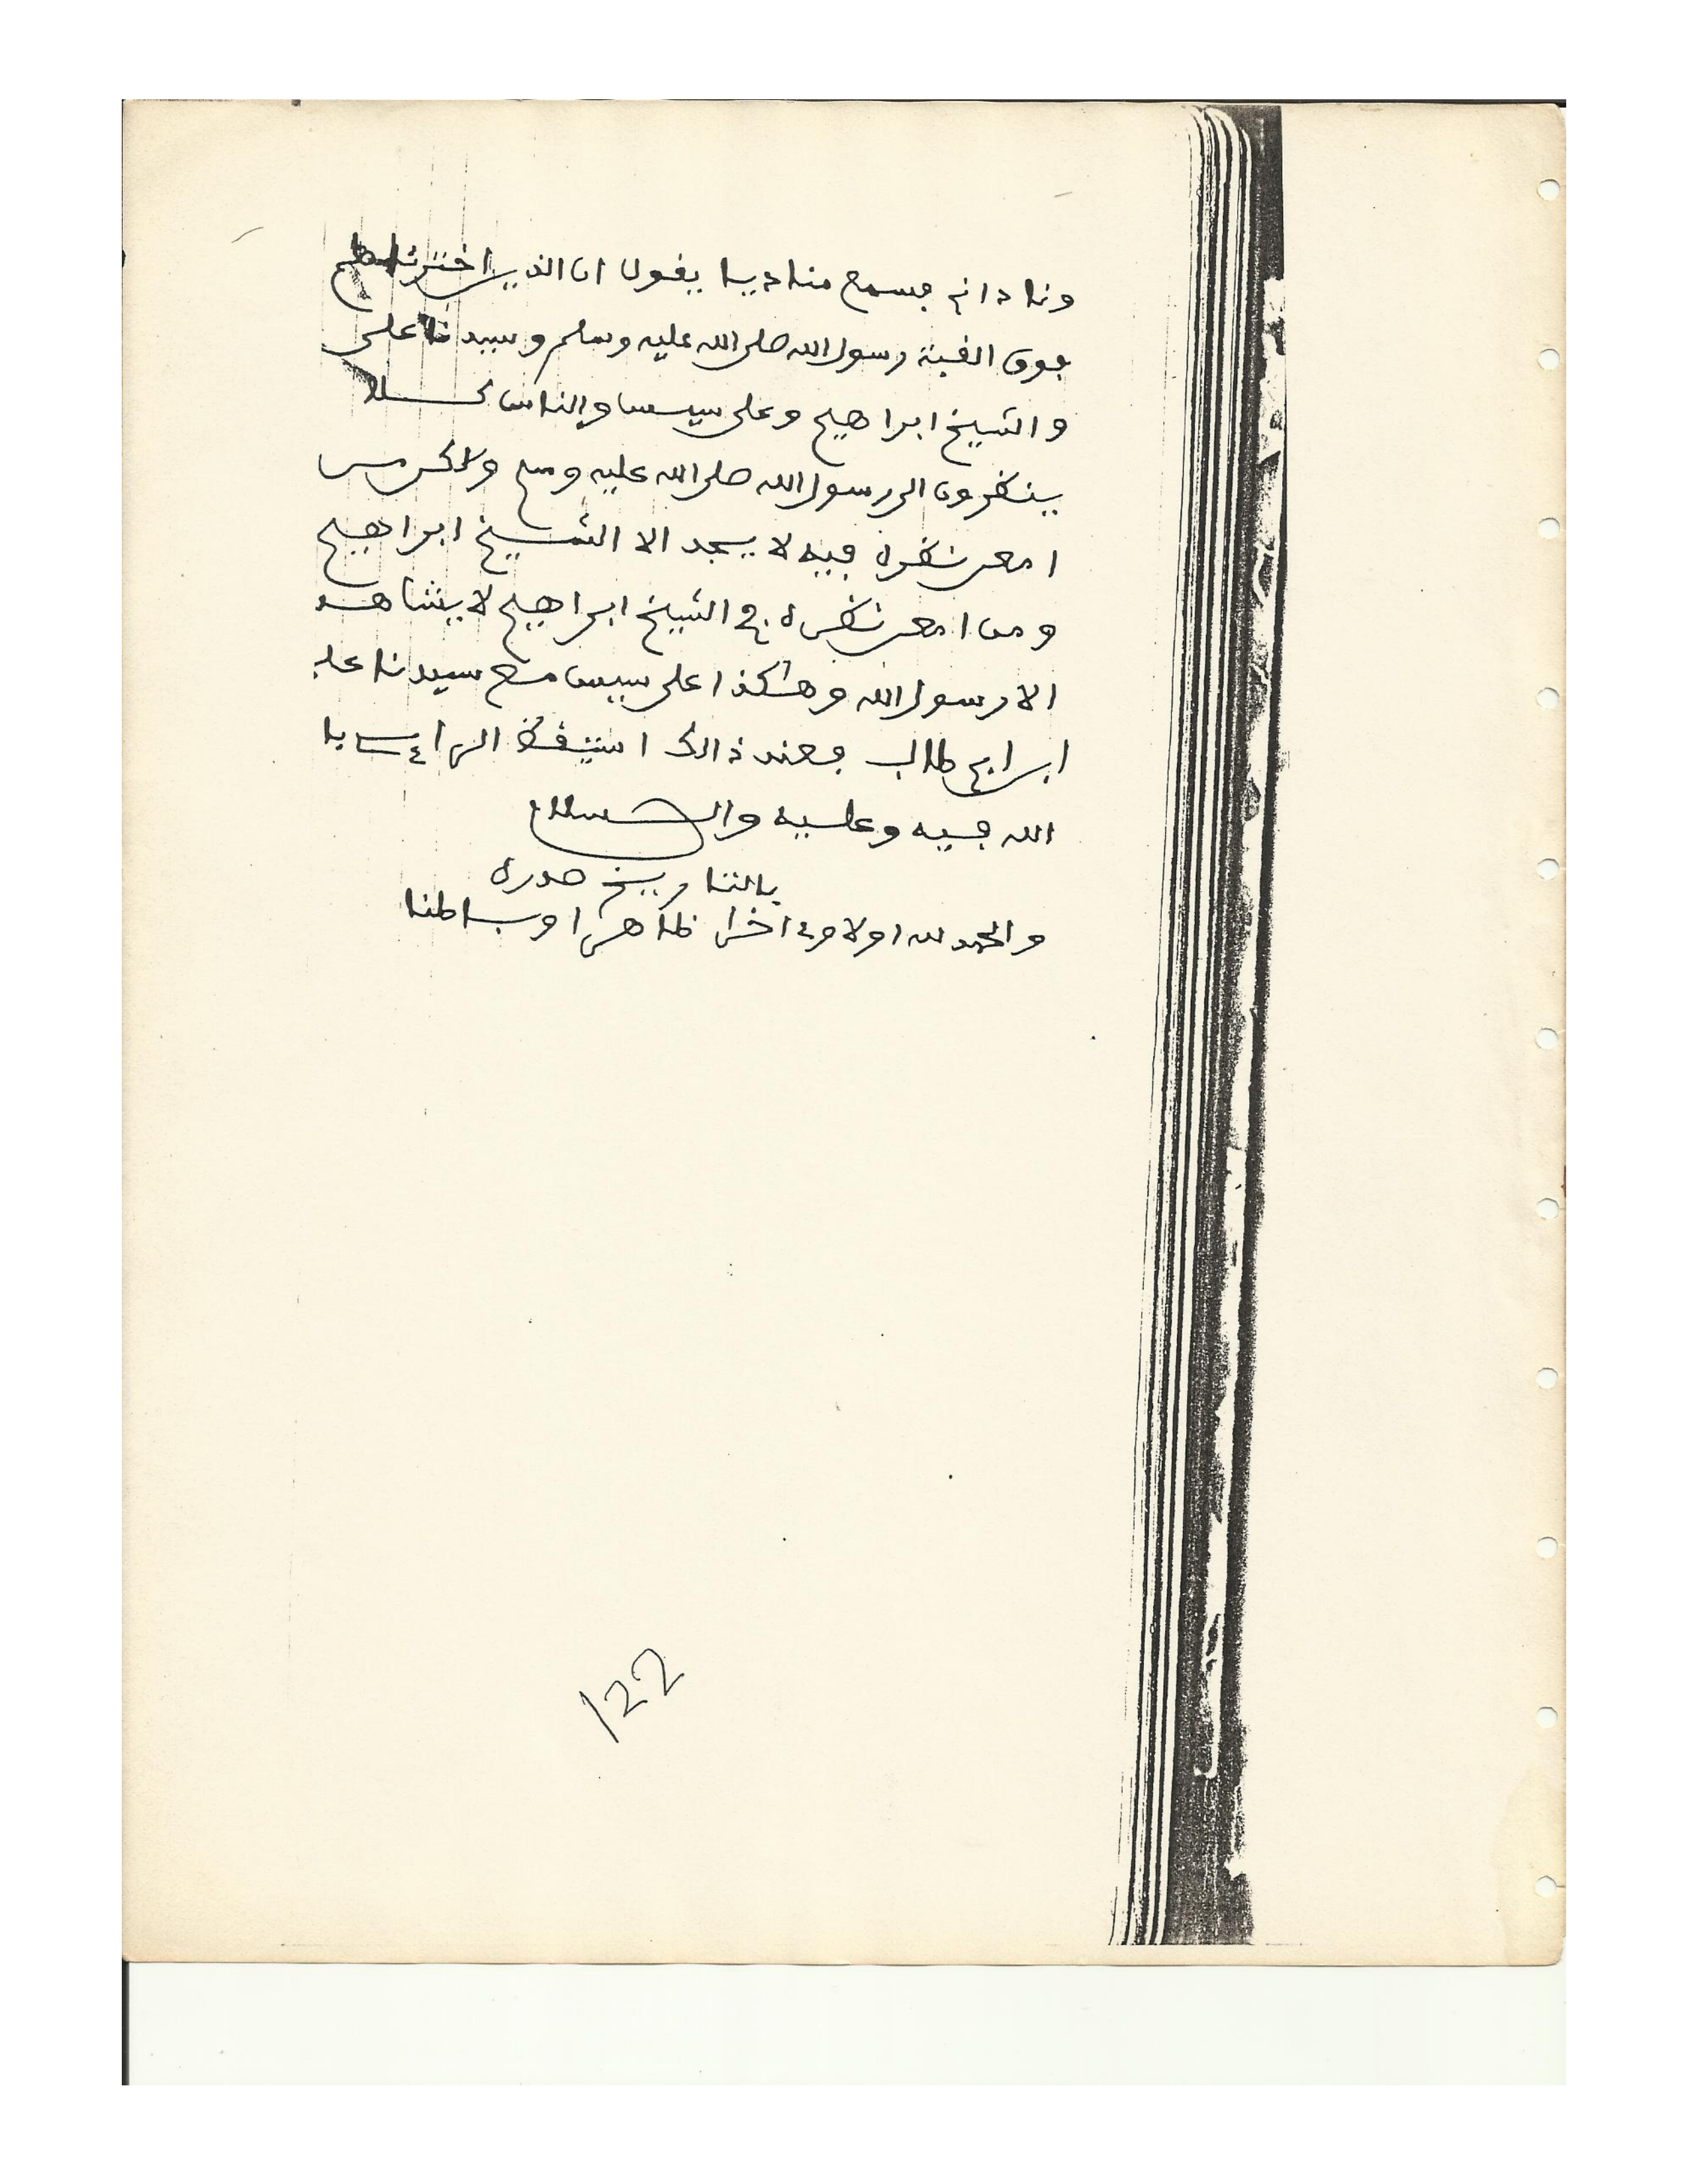 ونادانى فسمع مناديا يقول ان الذين اخترناهم
فوق القبة رسول الله صلى الله عليه وسلم وسيدنا على
والشيخ ابراهيم وعلى سيس والناس كلا
ينظرون الى رسول الله صلى الله عليه وسلم ولاكن من
امعن نظره فيه لا يجد الا الشيخ ابراهيم
ومن امعن نظره في الشيخ ابراهيم لا يشاهد
الا رسول الله وهكذا على سيس مع سيدنا على
ابن ابي طالب فعند ذالك استيقظ الرائ يا
الله فيه وعليه والسلام
بالتاريخ صدره
والحمد لله اولا وءاخرا ظاهرا وباطنا
122